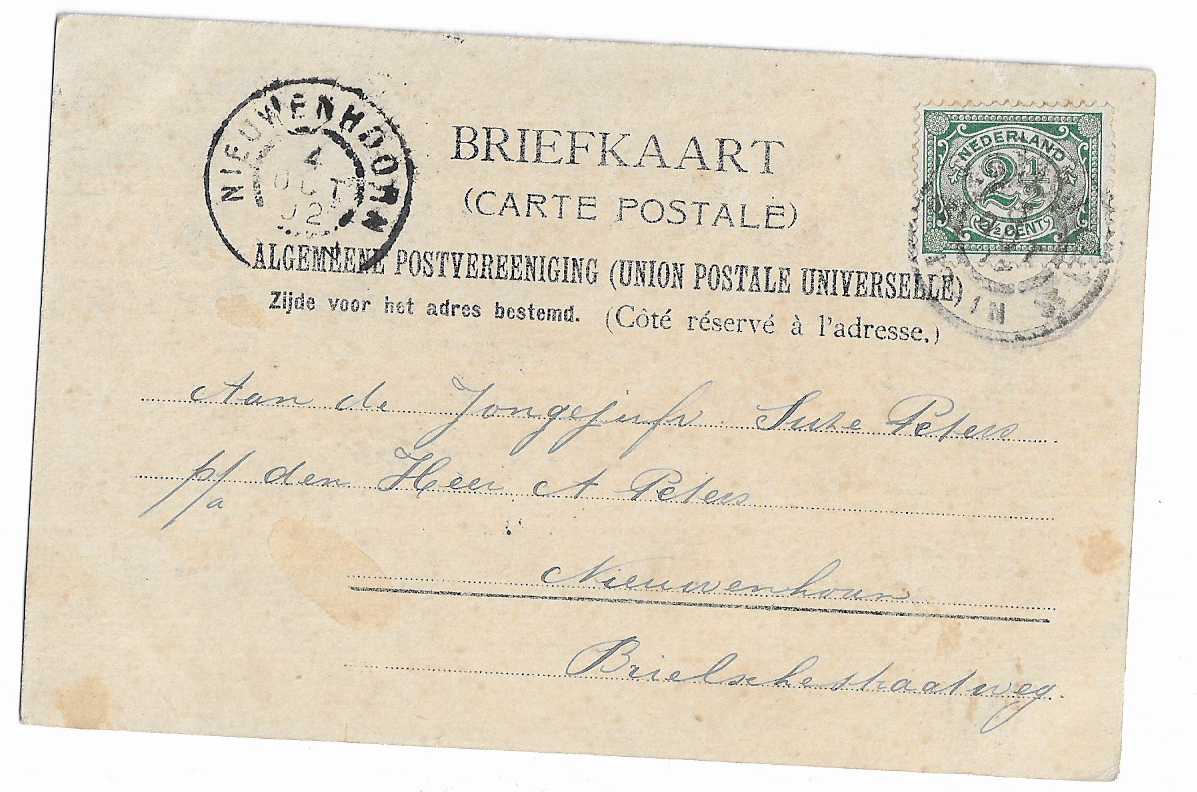 NIEUWENHOORN
4
OCT
02
BRIEFKAART
(CARTE POSTALE)
ALGEMEENE POSTVEREENIGING (UNION POSTALE UNIVERSELLE)
Zijde voor het adres bestemd. (Côté réservé à l'adresse.)
NEDERLAND
2½
2½ CENT
Aan de Jongejufr. Suze Peters
p/a den Heer A Peters
Nieuwenhoorn
Brielschestraatweg.